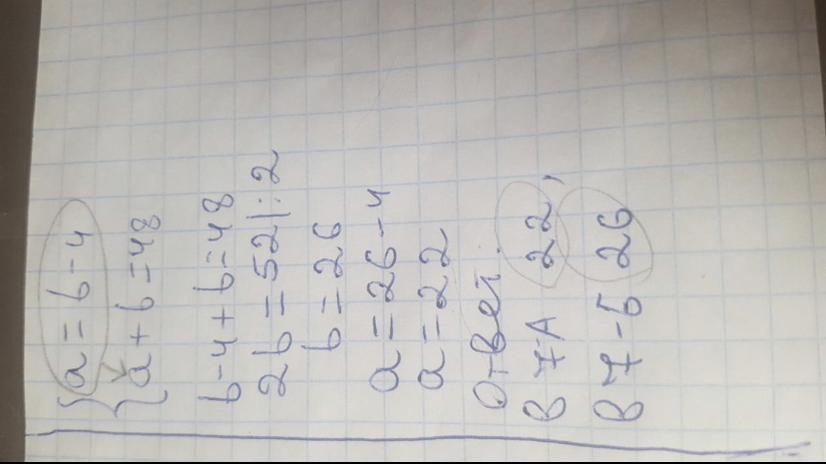 a = b - 4
a + b = 48
b - 4 + b = 48
2b = 52 | : 2
b = 26
a = 26 - 4
a = 22
Ответ:
В 7-А 22,
В 7-Б 26